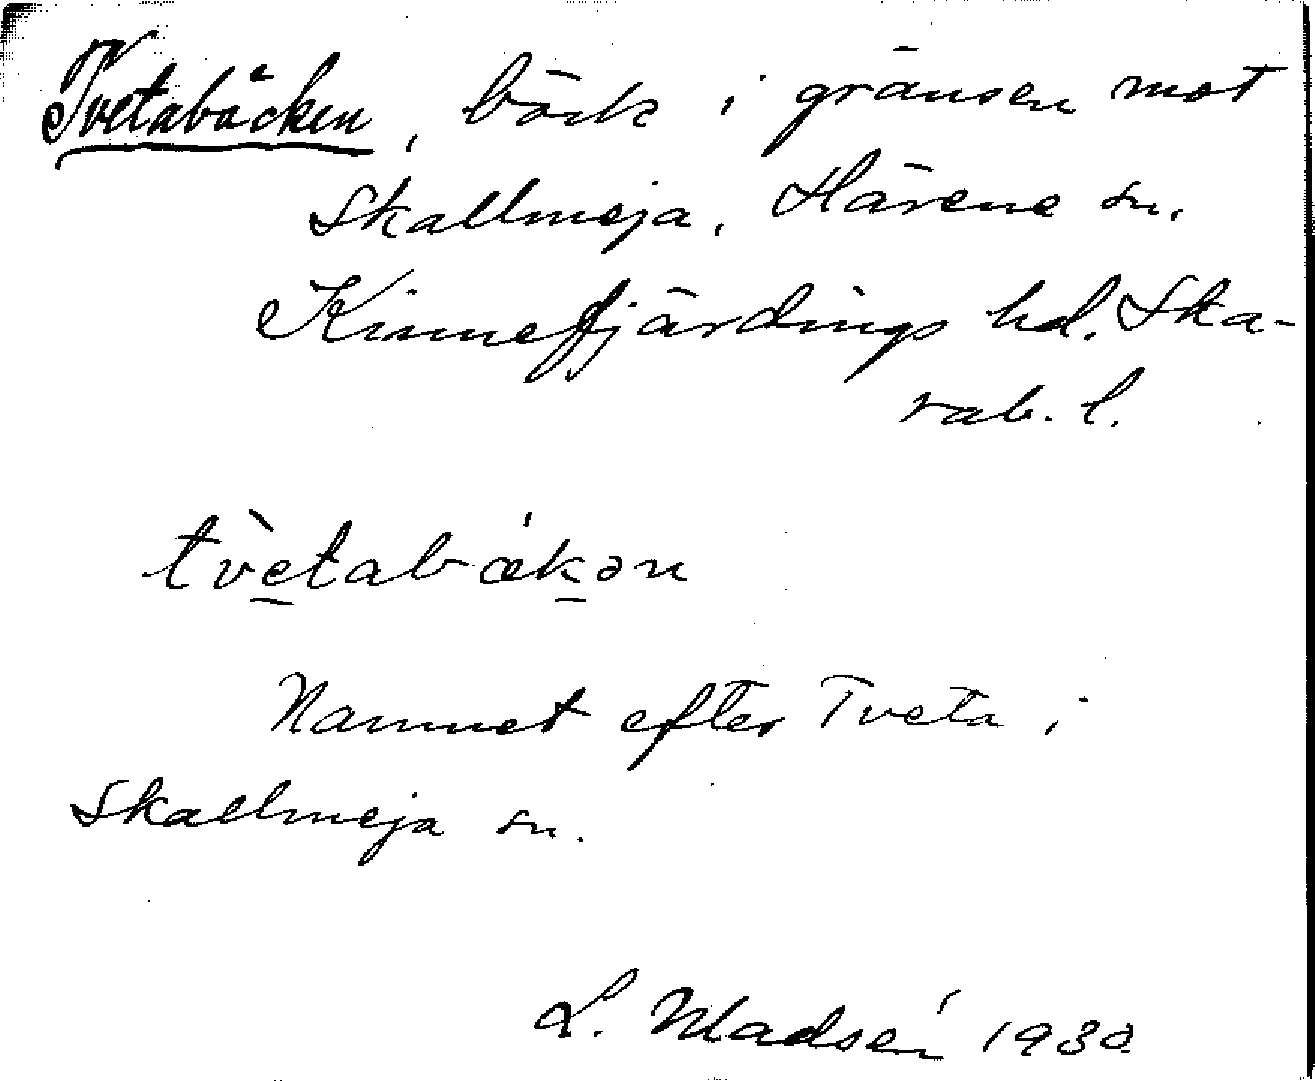 Tvetabäcken, bäck i gränsen mot
Skallmeja, Härene sn.
Kinnefjärdings hd. Ska-
rab. l.
tvètabækən
Namnet efter Tveta i
Skallmeja sn.
L. Madsén 1930